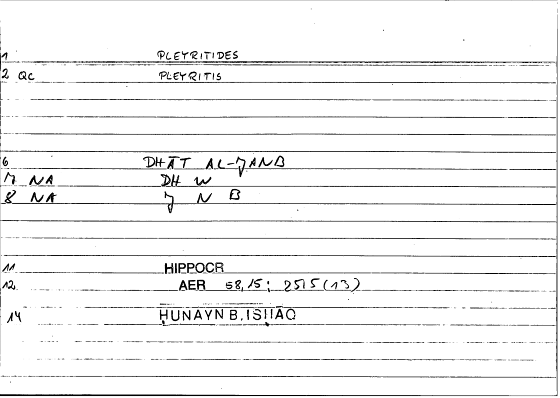 1 PLEYRITIDES
2 Qc PLEYRITIS
6 DHĀT AL-JANB
7 NA DH W
8 NA J N B
11 HIPPOCR
12 AER 58,15;
14 ḤUNAYN B. ISḤĀQ